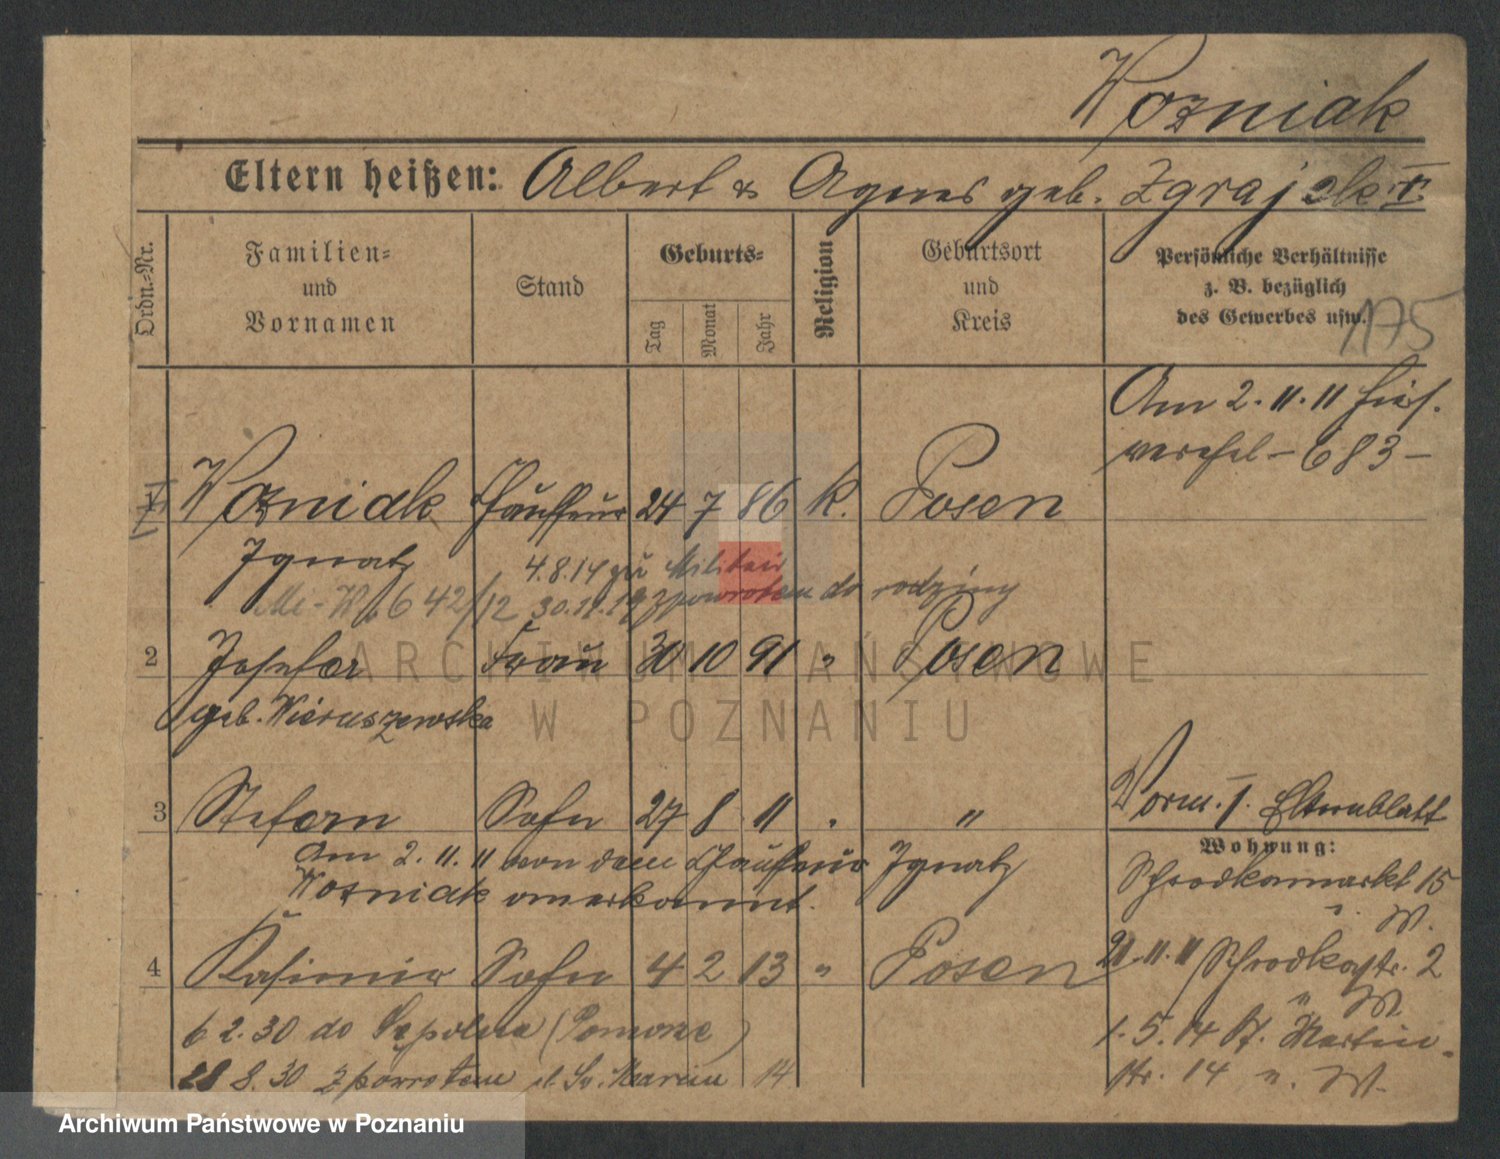 Wozniak
Eltern heißen: Albert & Agnes geb. Zgrajek
Ordn.-Nr.
Familien- und Vornamen
Stand
Geburts-
Tag
Monat
Jahr
Religion
Geburtsort und Kreis
Persönliche Verhältnisse
z. B. bezüglich
des Gewerbes usw.
175
Am 2.11.11 hies.
verehel - 683 -
1 Wozniak Chauffeur 24 7 86 k. Posen
Ignatz
4.8.14 zu Militair
Mi-W. 642/12 30.11.19 zpowrotem do rodziny
2 Josefa Frau 30 10 91 " Posen
geb. Wieruszewska
3 Stefan Sohn 27 8 11 " "
Am 2.11.11 von dem Chauffeur Ignatz
Wozniak anerkannt.
4 Kasimir Sohn 4 2 13 " Posen
6 2.30 do Sępolna (Pomorze)
28 8.30 zpowrotem ul. Św. Marcin 14
Vorm. I. Elternblatt
Wohnung:
Schrodkamarkt 15
W.
21.11.11 Schrodkastr. 2
" W
1.5.14 St. Martin-
str. 14 n. W.
ARCHIWUM PAŃSTWOWE
W POZNANIU
Archiwum Państwowe w Poznaniu